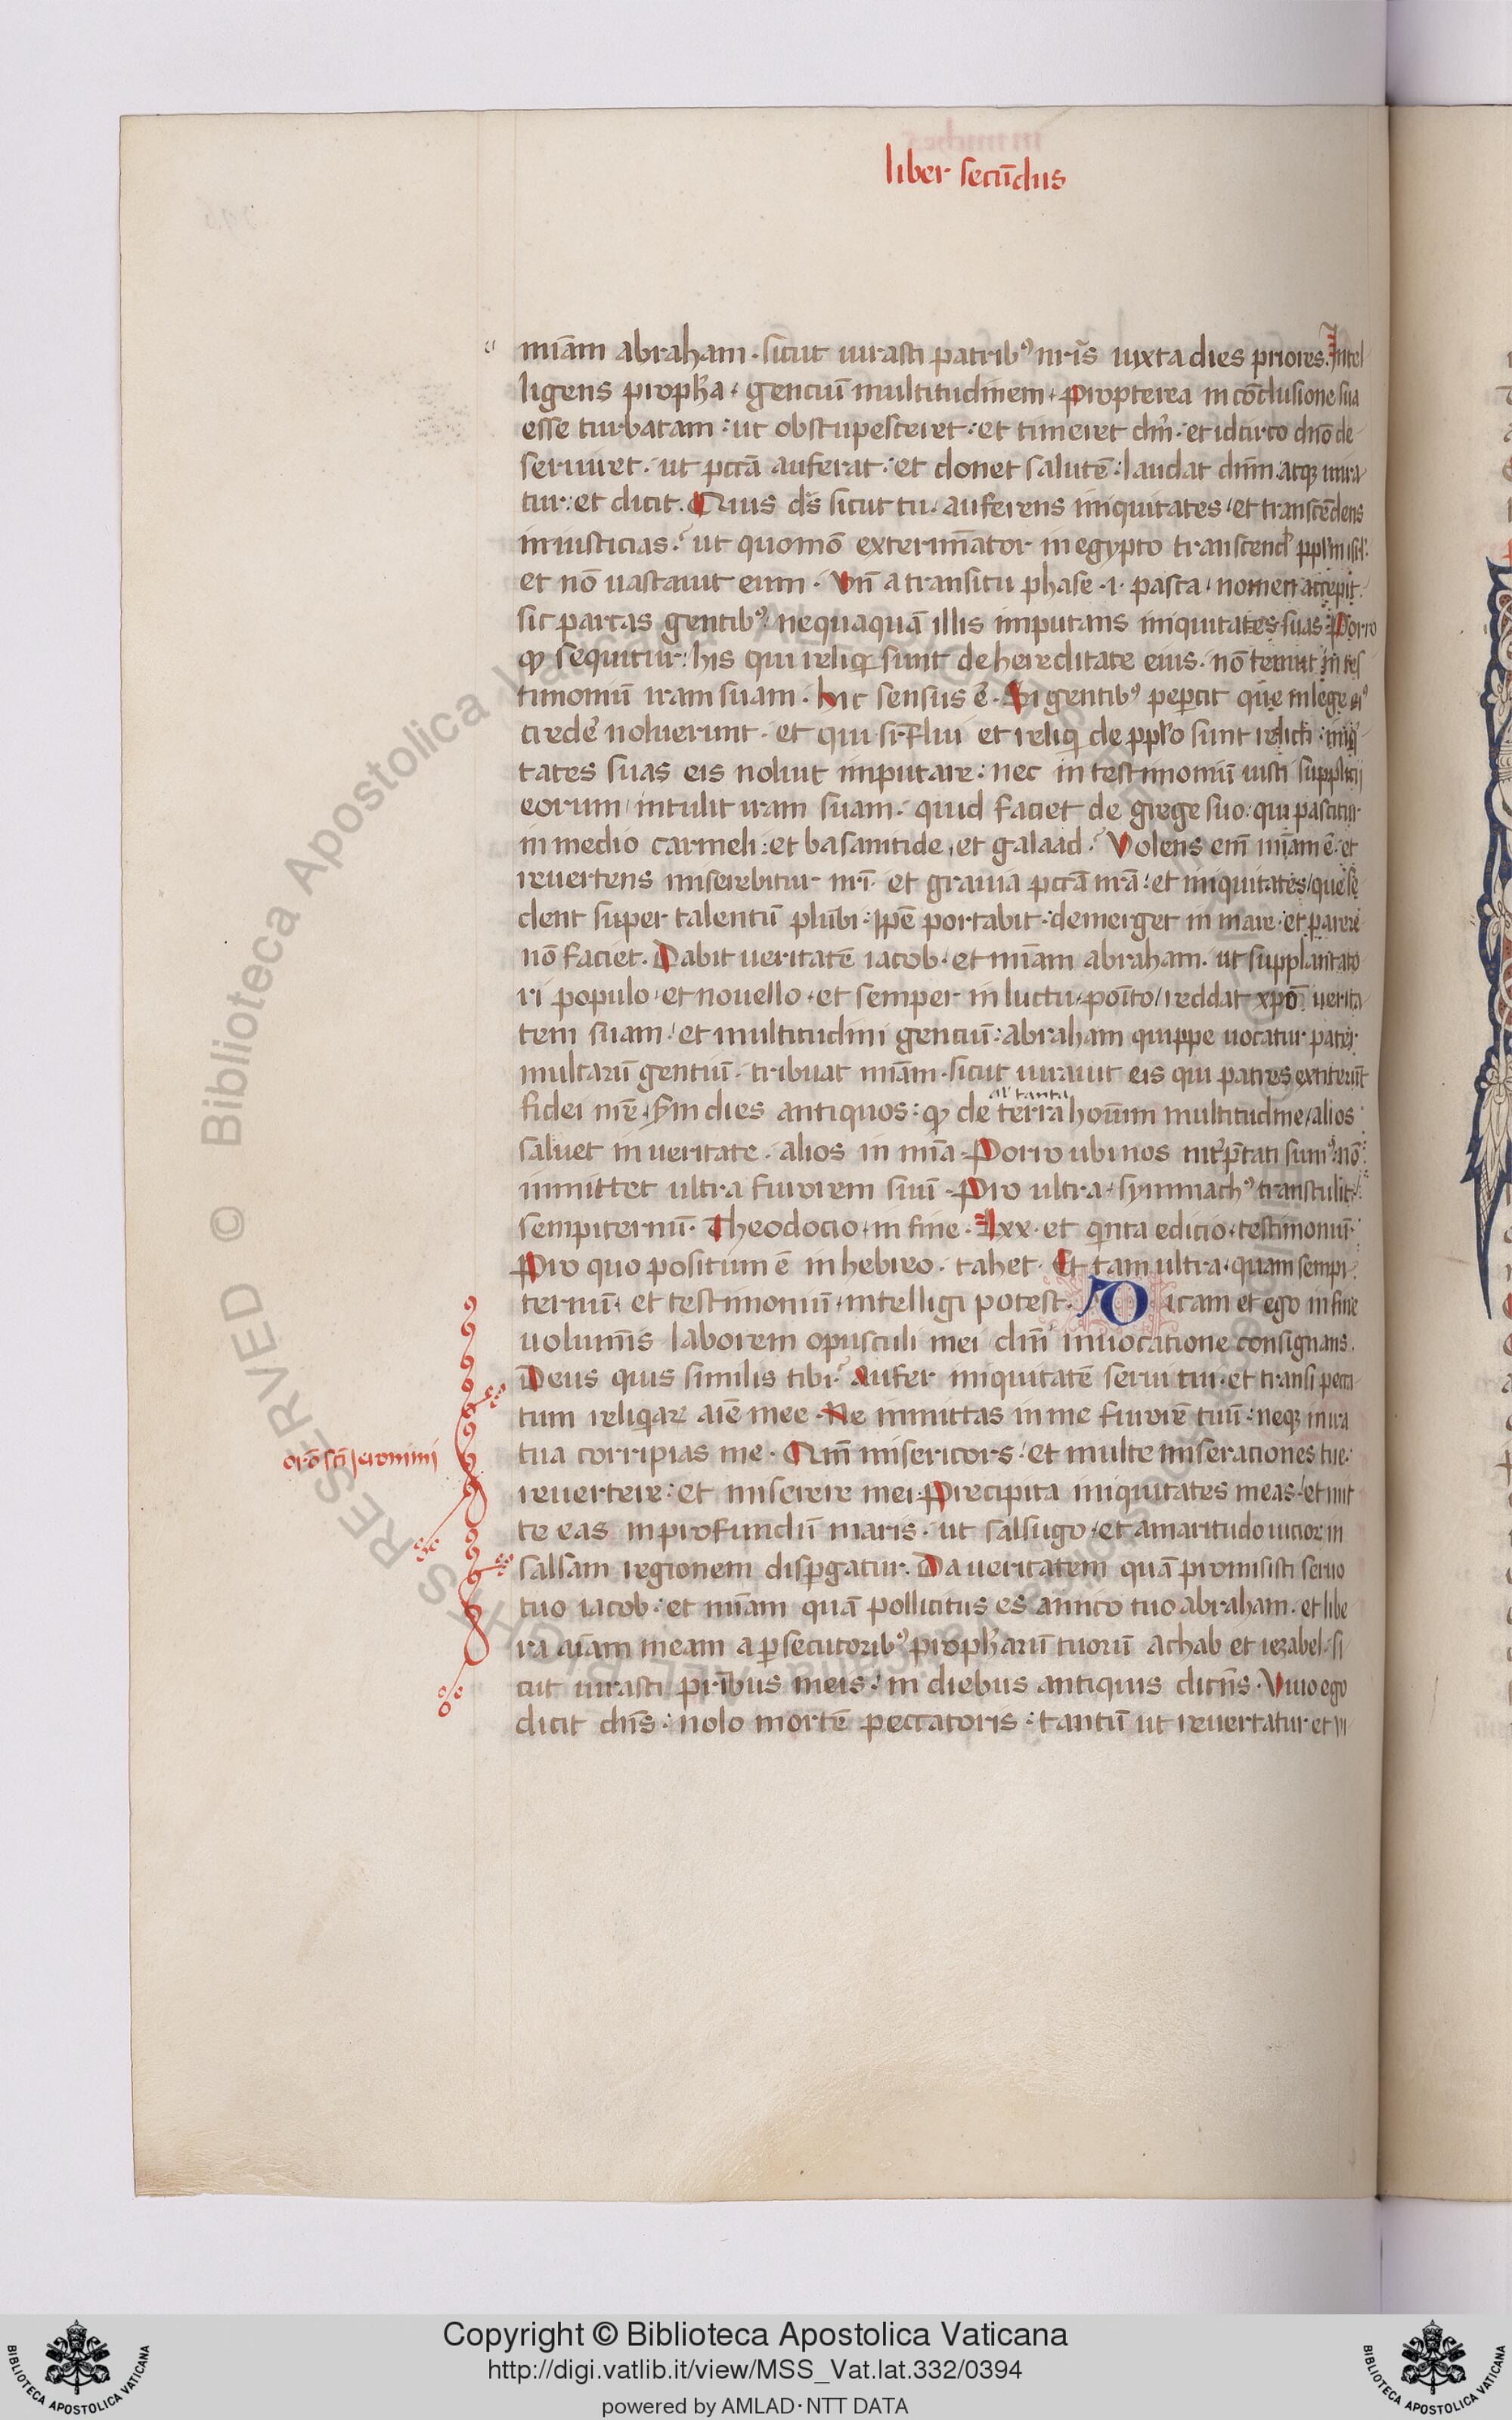 liber secūdus
miam̄ abraham. sicut iurasti patribꝰ nr̄is iuxta dies priores. Intel
ligens prophīa. genciū multitudinem. Propterea in cōclusione sua
esse turbatam: ut obstupesceret: et timeret dm̄: et idcirco dnō de
seruiret. ut pcc̄ā auferat: et donet salutē: laudat dnm̄. atqꝫ mira
tur: et dicit. Quis ds̄ sicut tu. auferens iniquitates. et transcēdens
iniusticias? ut quomō extermīator in egypto transcend̕ ppl̄m isrl̄:
et nō uastauit eum. Vn̄ a transitu phase .i. pasca. nomen accepit.
sic parcas gentibꝰ. nequaquā illis imputans iniquitates suas. Porro
ꝙ sequitur: his qui reliqi sunt de hereditate eius. nō tenuit in tes
timoniū iram suam. hic sensus ē. Si gentibꝰ pepercit que in lege eiꝰ
crede̕ noluerunt. et qui ex isrl̄ et reliqi de pplo sunt relicti: iniqi
tates suas eis noluit imputare: nec in testimoniū iusti supplicij
eorum intulit iram suam. quid faciet de grege suo. qui pascitur
in medio carmeli: et basanitide. et galaad? Volens em̄ miam̄ ē. et
reuertens miserebitur nr̄i. et grauia pcc̄ā nrā. et iniquitates/que se
dent super talentū plūbi: ip̄e portabit: demerget in mare. et parere
nō faciet. Dabit ueritatē iacob. et miam̄ abraham. ut supplantato
ri populo. et nouello. et semper in luctu/poīto/reddat xpō uerita
tem suam. et multitudini genciū: abraham quippe uocatur pater
multarū gentiū. tribuat miam̄. sicut iurauit eis qui patres extiterūt
al' tanta
fidei nr̄e. scd̄m dies antiquos: ꝙ de terra hoīum multitudine/alios
saluet in ueritate. alios in mīa. Porro ubi nos int̕p̄tati sumꝰ. nō
inmittet ultra furorem suū. Pro ultra. symmachꝰ transtulit.
sempiternū. Theodocio. in fine. Lxx. et qinta edicio. testimoniū.
Pro quo positum ē in hebreo. tahet. Et tam ultra. quam sempi
ternū. et testimoniū. intelligi potest. Dicam et ego in fine
uolumīs laborem opusculi mei dm̄i inuocatione consignans.
Deus quis similis tibi? Aufer iniquitatē serui tui. et transi pecca
tum reliqiar aīe mee. Ne inmittas in me furorē tuū: neqꝫ in ira
orō sct̄i Jeronimi
tua corripias me. Qm̄ misericors. et multe miseraciones tue:
reuertere: et miserere mei. Precipita iniquitates meas. et mit
te eas in profundū maris. ut salsugo. et amaritudo uicior in
salsam regionem disp̱gatur. Da ueritatem quā promisisti seruo
tuo iacob: et miam̄ quā pollicitus es amico tuo abraham. et libe
ra aīam meam a p̱secutoribꝰ prophīarū tuorū achab et iezabel. si
cut iurasti pr̄ibus meis. in diebus antiquis dicn̄s. Viuo ego
dicit dn̄s: nolo mortē peccatoris: tantū ut reuertatur et ui
Copyright © Biblioteca Apostolica Vaticana
http://digi.vatlib.it/view/MSS_Vat.lat.332/0394
powered by AMLAD·NTT DATA